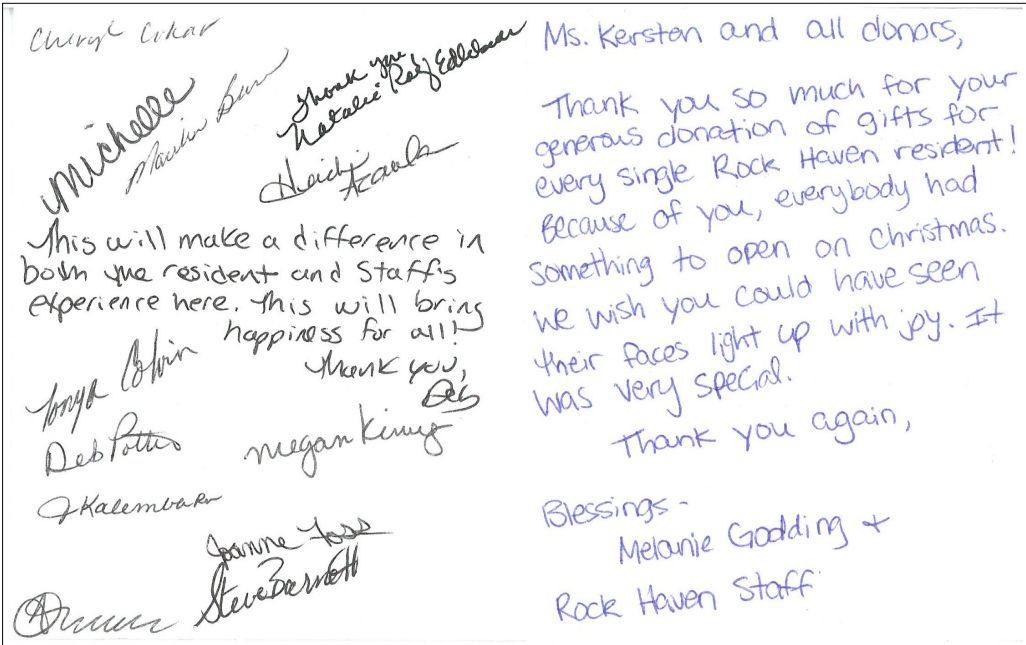 Cheryl
Michelle
Thank you
Natalie
Heidi
This will make a difference in
both the resident and Staff's
experience here. This will bring
happiness for all!
Thank you,
Deb
Tonya Colvin
Deb Potts
Megan
Joanne Foss
Steve Barnett
Ms. Kersten and all donors,
Thank you so much for your
generous donation of gifts for
every single Rock Haven resident!
Because of you, everybody had
something to open on Christmas.
We wish you could have seen
their faces light up with joy. It
was very special.
Thank you again,
Blessings -
Melanie Godding +
Rock Haven Staff